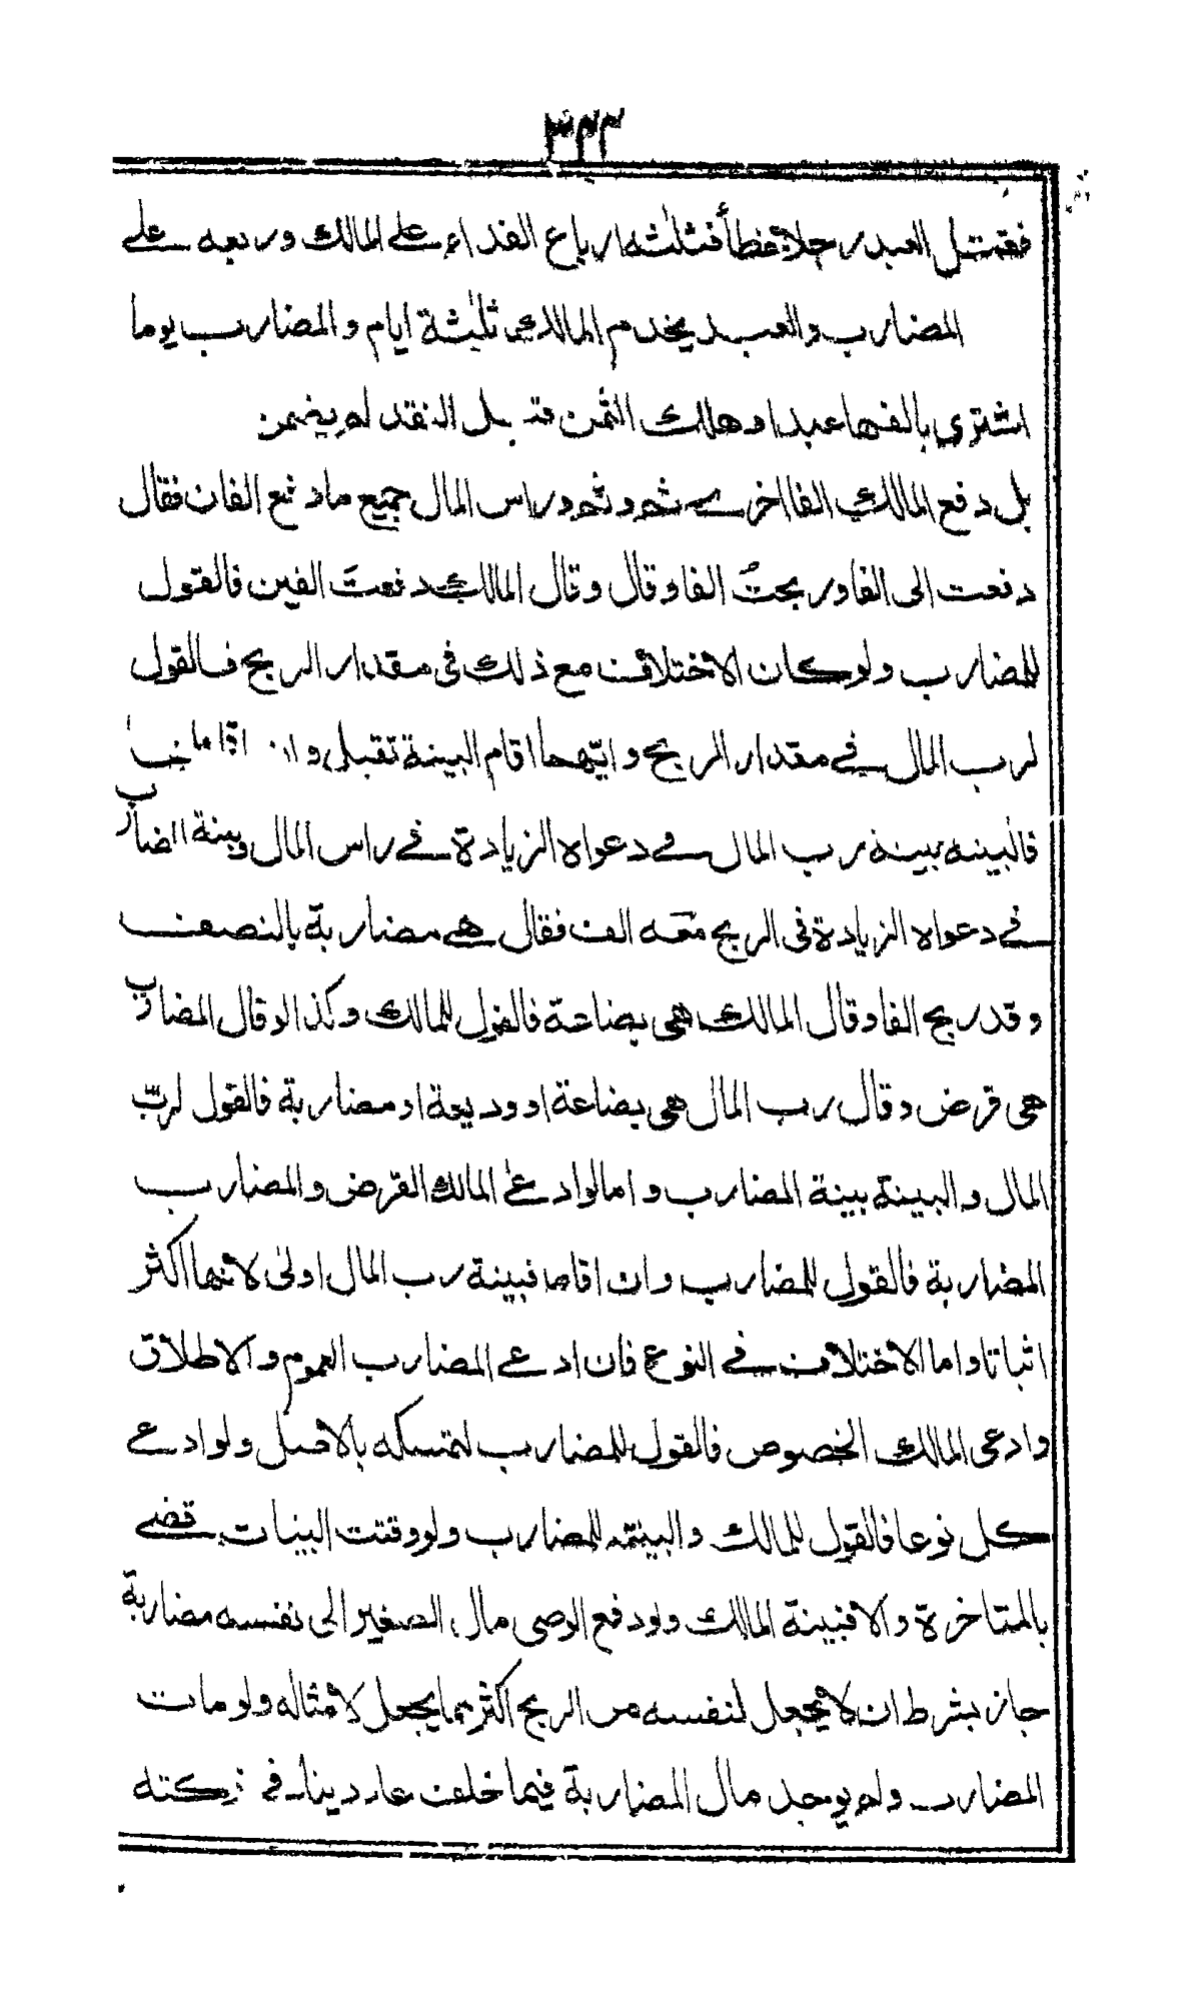 ٣٣٣
فقتل العبد رجلا خطأ فثلثه ارباع الفداء على المالك وربعه على
المضارب والعبد يخدم المالك ثلثة ايام والمضارب يوما
اشترى بالفها عبدا وهلك الثمن قبل النقد لم يضمن
بل دفع المالك الفا اخرى ثم وثم وراس المال جميع ما دفع الفان فقال
دفعت الى الفا وربحتُ الفا وقال وقال المالك دفعت الفين فالقول
للمضارب ولو كان الاختلاف مع ذلك فى مقدار الربح فالقول
لرب المال فى مقدار الربح وايهما اقام البينة تقبل وان اقاماها
فالبينه بينة رب المال فى دعواه الزيادة فى راس المال وبينة المضارب
فى دعواه الزيادة فى الربح معه الف فقال هى مضاربة بالنصف
وقد ربح الفا وقال المالك هى بضاعة فالقول للمالك وكذا لو قال المضارب
هى قرض وقال رب المال هى بضاعة او وديعة او مضاربة فالقول لربّ
المال والبينة بينة المضارب واما لو ادعى المالك القرض والمضارب
المضاربة فالقول للمضارب وان اقاما فبينة رب المال اولى لانها اكثر
اثباتا واما الاختلاف فى النوع فان ادعى المضارب العموم والاطلاق
وادعى المالك الخصوص فالقول للمضارب لتمسكه بالاصل ولو ادعى
كل نوعا فالقول للمالك والبينة للمضارب ولو وقتت البينات قضى
بالمتاخرة والا فبينة المالك ولو دفع الوصى مال الصغير الى نفسه مضاربة
جاز بشرط ان لا يجعل لنفسه من الربح اكثر مما يجعل لامثاله ولو مات
المضارب ولم يوجد مال المضاربة فيما خلف عاد دينا فى تركته